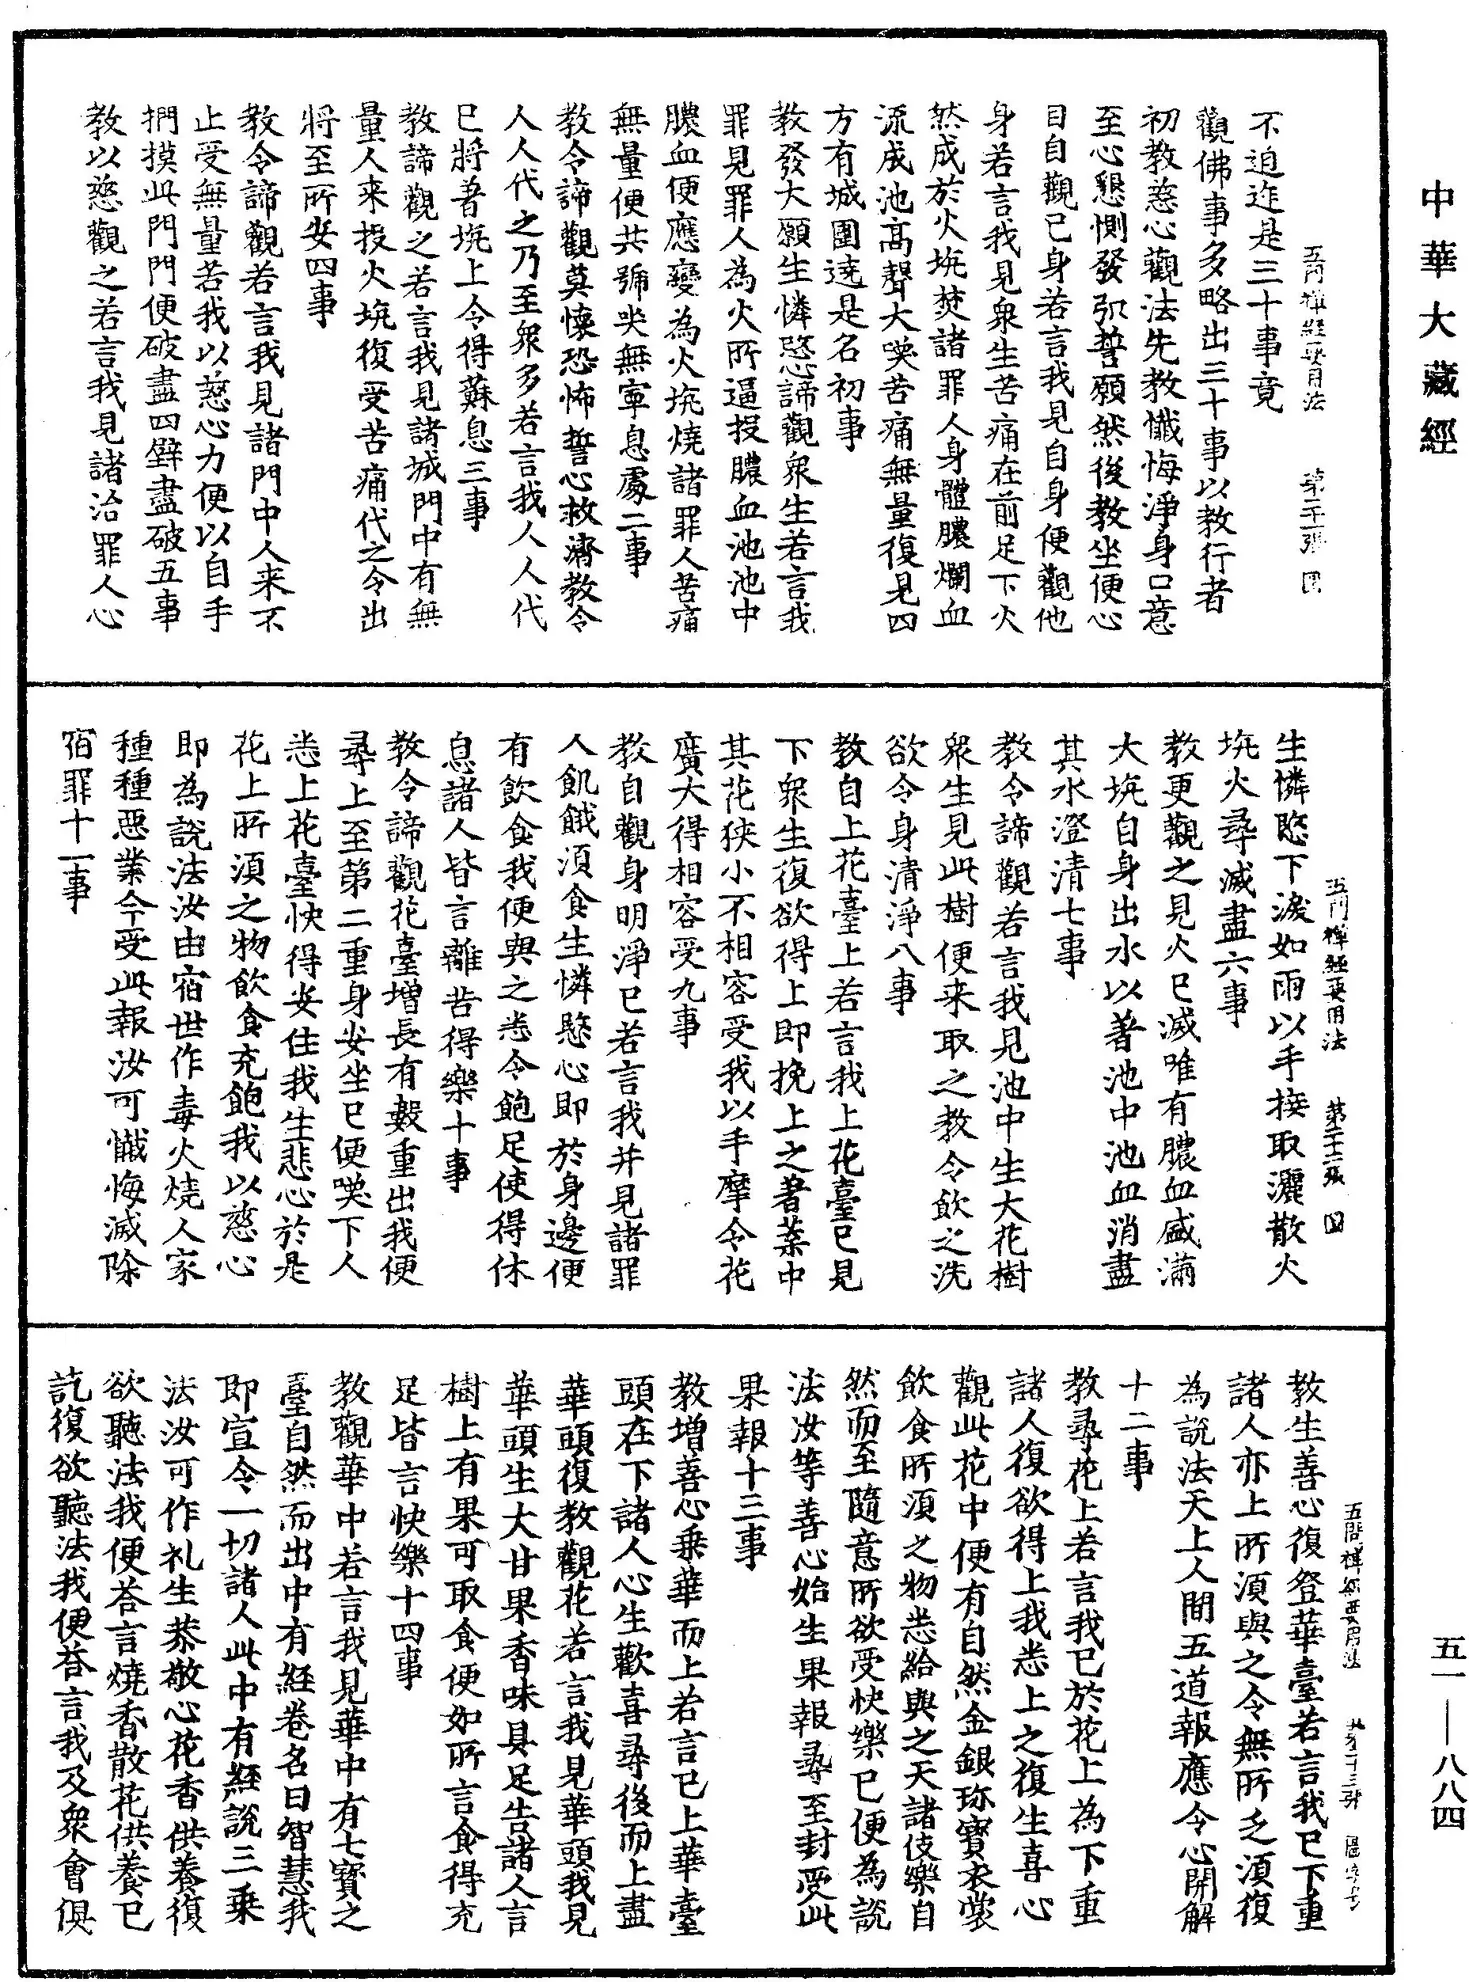 中華大藏經
五一—八八四
五門禪經要用法　第二十一張　圖
不迫迮是三十事竟
觀佛事多略出三十事以教行者
初教慈心觀法先教懺悔淨身口意
至心懇惻發弘誓願然後教坐便心
目自觀已身若言我見自身便觀他
身若言我見衆生苦痛在前足下火
然成於火坑焚諸罪人身體膿爛血
流成池高聲大㗛苦痛無量復見四
方有城圍遶是名初事
教發大願生憐愍諦觀衆生若言我
罪見罪人為火所逼投膿血池池中
膿血便應變為火坑燒諸罪人苦痛
無量便共號㗛無寧息處二事
教令諦觀莫懷恐怖誓心救濟教令
人人代之乃至衆多若言我人人代
已將著坑上令得蘇息三事
教諦觀之若言我見諸城門中有無
量人来投火坑復受苦痛代之令出
將至所安四事
教令諦觀若言我見諸門中人来不
止受無量苦我以慈心力便以自手
捫摸此門門便破盡四壁盡破五事
教以慈觀之若言我見諸治罪人心
五門禪經要用法　第二十二張　圖
生憐愍下淚如雨以手接取灑散火
坑火尋滅盡六事
教更觀之見火已滅唯有膿血盛滿
大坑自身出水以著池中池血消盡
其水澄清七事
教令諦觀若言我見池中生大花樹
衆生見此樹便来取之教令飲之洗
欲令身清淨八事
教自上花臺上若言我上花臺已見
下衆生復欲得上即挽上之著葉中
其花狹小不相容受我以手摩令花
廣大得相容受九事
教自觀身明淨已若言我并見諸罪
人飢餓須食生憐愍心即於身邊便
有飲食我便與之悉令飽足使得休
息諸人皆言離苦得樂十事
教令諦觀花臺增長有數重出我便
尋上至第二重身安坐已便㗛下人
悉上花臺快得安住我生悲心於是
花上所須之物飲食充飽我以慈心
即為說法汝由宿世作毒火燒人家
種種惡業今受此報汝可懺悔滅除
宿罪十一事
五門禪經要用法　第二十三張
教生善心復登華臺若言我已下重
諸人亦上所須與之令無所乏須復
為說法天上人間五道報應令心開解
十二事
教尋花上若言我已於花上為下重
諸人復欲得上我悉上之復生喜心
觀此花中便有自然金銀珎寶衣裳
飲食所須之物悉給與之天諸伎樂自
然而至隨意所欲受快樂已便為說
法汝等善心始生果報尋至封受此
果報十三事
教增善心乗華而上若言已上華臺
頭在下諸人心生歡喜尋後而上盡
華頭復教觀花若言我見華頭我見
華頭生大甘果香味具足告諸人言
樹上有果可取食便如所言食得充
足皆言快樂十四事
教觀華中若言我見華中有七寶之
臺自然而出中有經卷名曰智慧我
即宣令一切諸人此中有經說三乗
法汝可作礼生恭敬心花香供養復
欲聽法我便荅言燒香散花供養已
訖復欲聽法我便荅言我及衆會俱